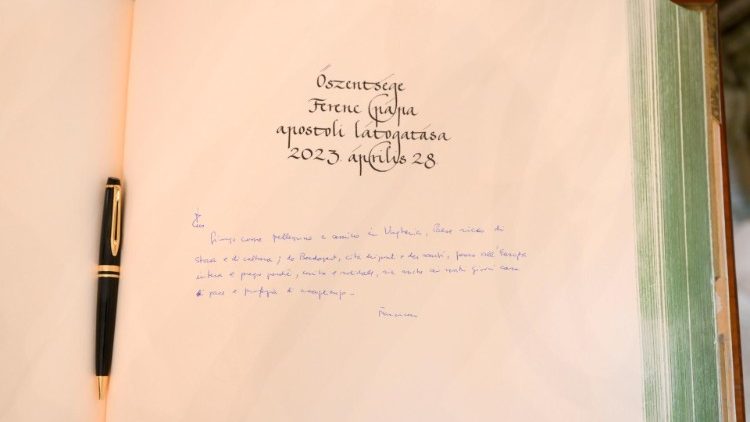 Őszentsége
Ferenc pápa
apostoli látogatása
2023 április 28
Giungo come pellegrino e amico in Ungheria, Paese ricco di
storia e di cultura; da Budapest, città dei ponti e dei santi, penso all'Europa
intera e prego perché, unita e solidale, sia anche ai nostri giorni casa
di pace e profezia di accoglienza.
Francesco